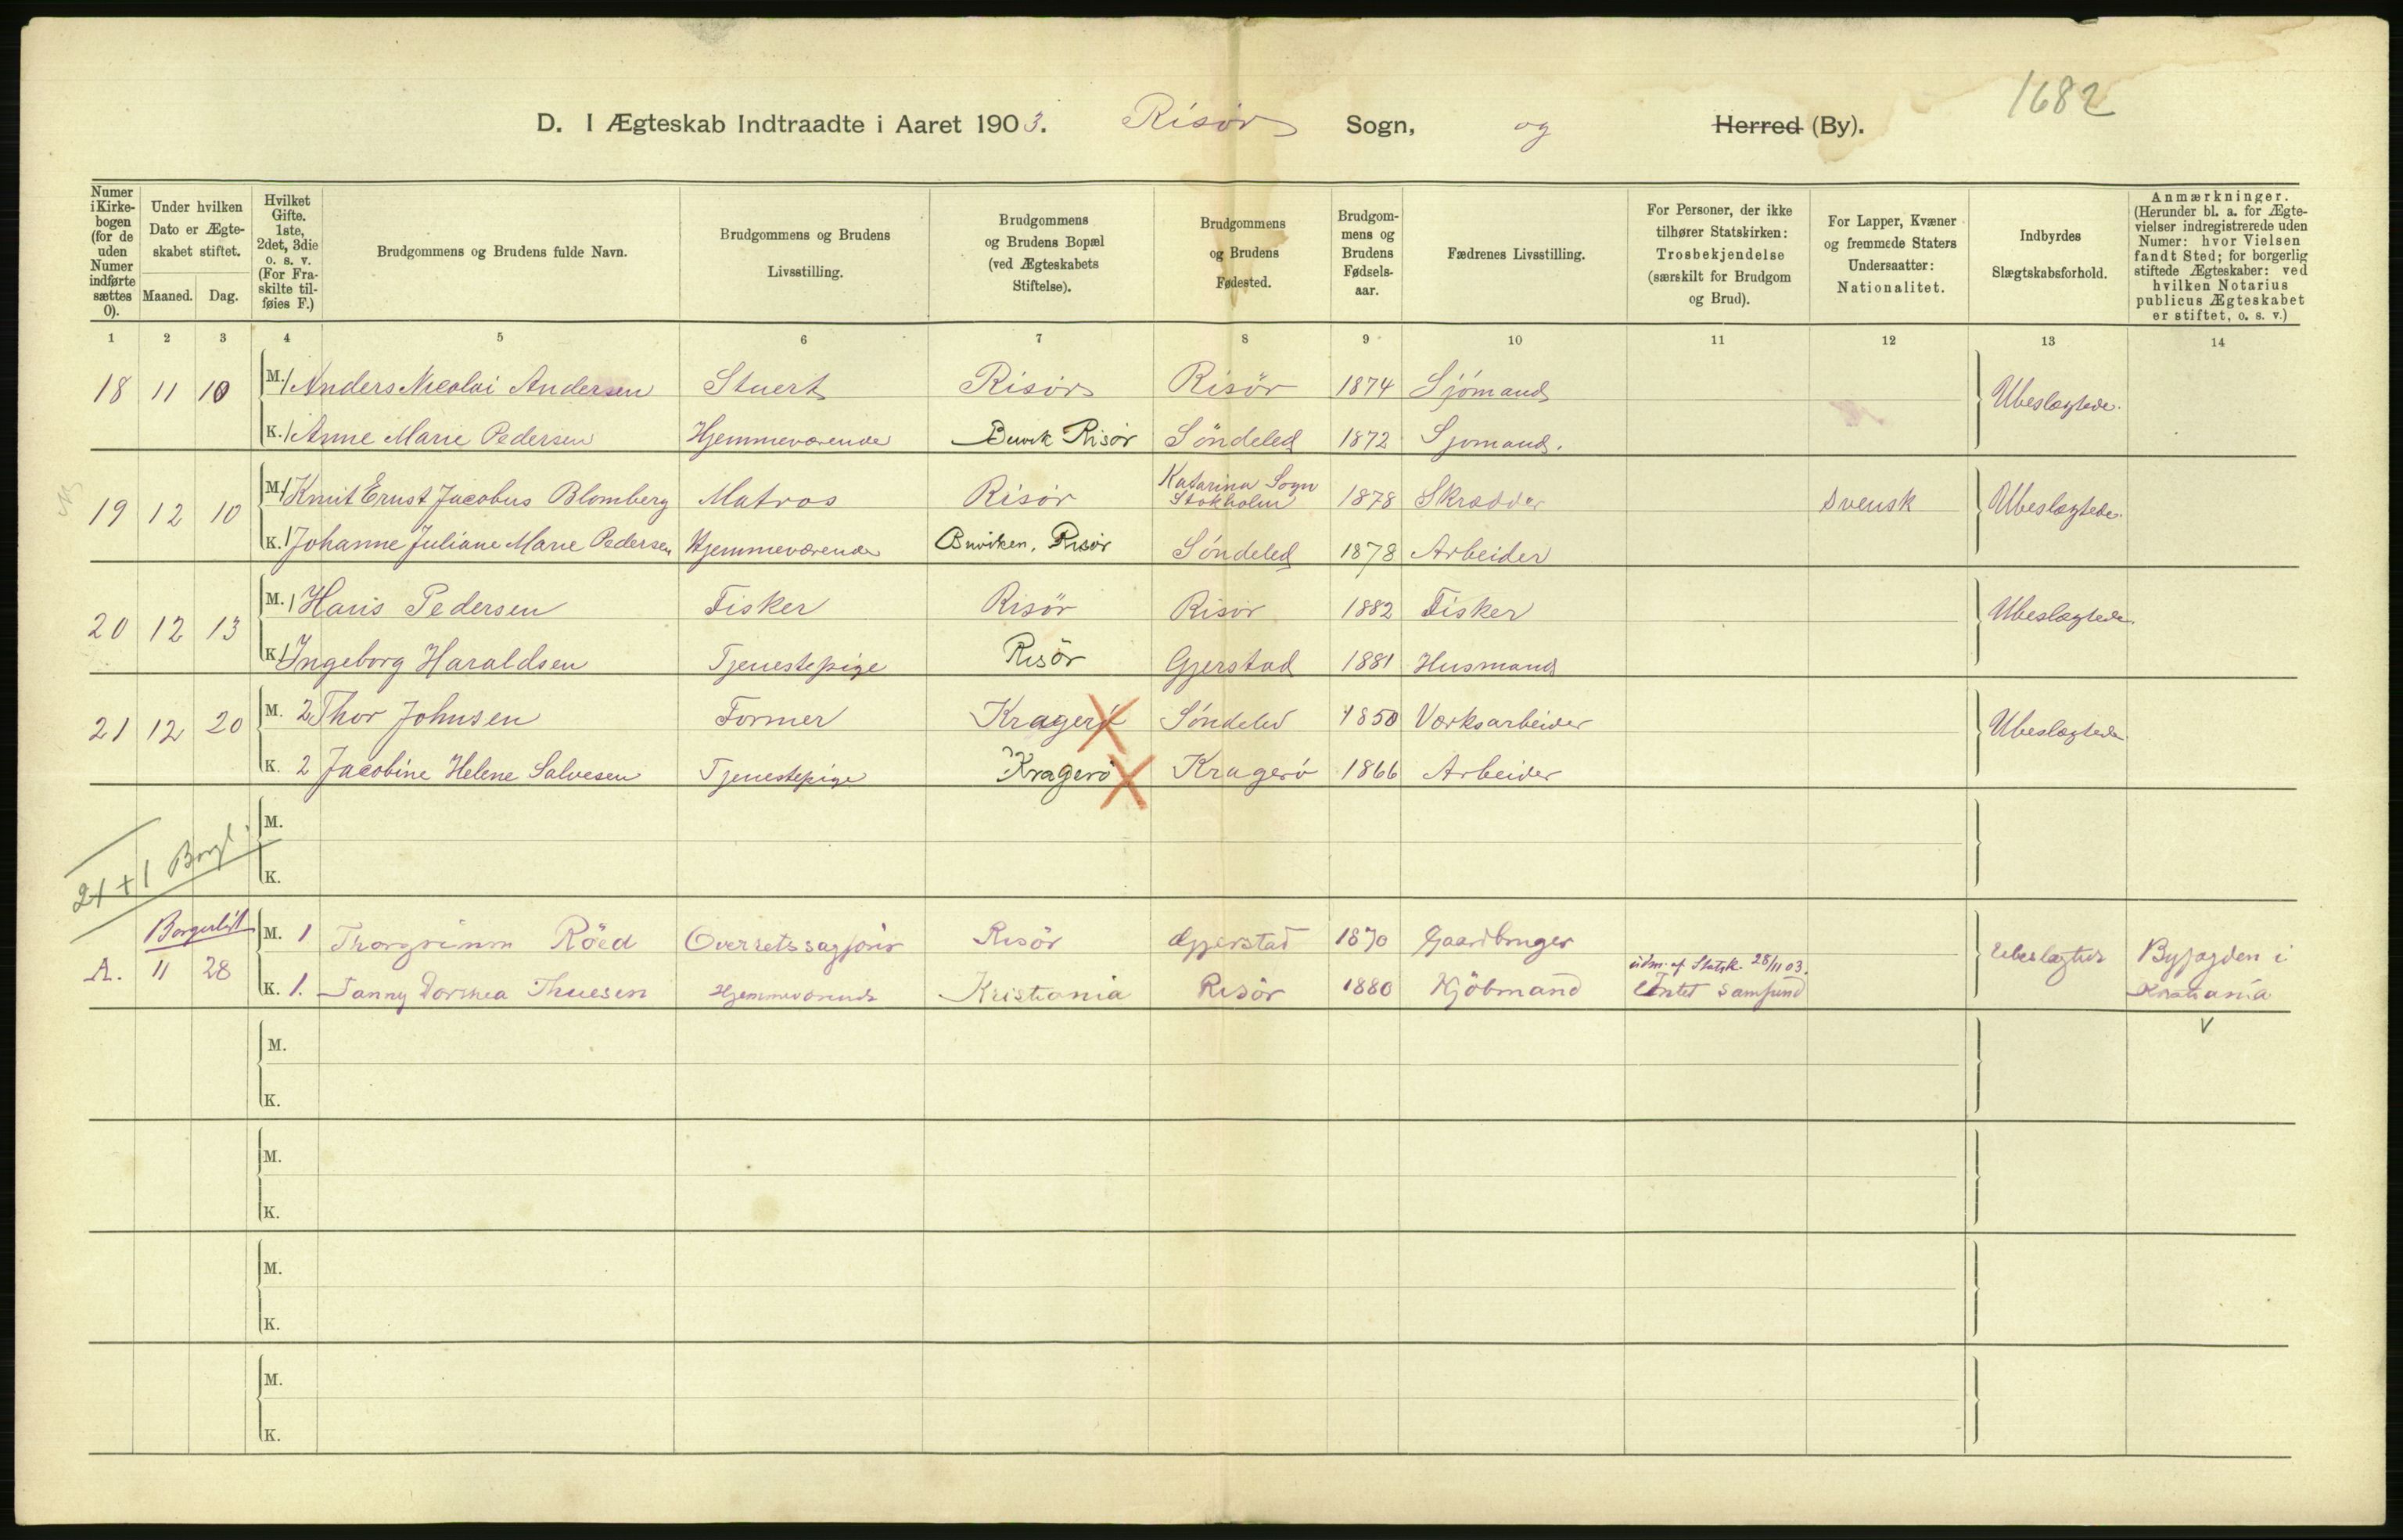 1682
D. I Ægteskab Indtraadte i Aaret 1903. Risör Sogn, og Herred (By).
Numer i Kirkebogen (for de uden Numer indførte sættes 0).
Under hvilken Dato er Ægteskabet stiftet.
Maaned. Dag.
Hvilket Gifte. 1ste, 2det, 3die o. s. v. (For Fraskilte tilføies F.)
Brudgommens og Brudens fulde Navn.
Brudgommens og Brudens Livsstilling.
Brudgommens og Brudens Bopæl (ved Ægteskabets Stiftelse).
Brudgommens og Brudens Fødested.
Brudgommens og Brudens Fødselsaar.
Fædrenes Livsstilling.
For Personer, der ikke tilhører Statskirken: Trosbekjendelse (særskilt for Brudgom og Brud).
For Lapper, Kvæner og fremmede Staters Undersaatter: Nationalitet.
Indbyrdes Slægtskabsforhold.
Anmærkninger. (Herunder bl. a. for Ægtevielser indregistrerede uden Numer: hvor Vielsen fandt Sted; for borgerlig stiftede Ægteskaber: ved hvilken Notarius publicus Ægteskabet er stiftet, o. s. v.)
1 2 3 4 5 6 7 8 9 10 11 12 13 14
18 11 10 M. 1 Anders Nicolai Andersen Stuert Risör Risör 1874 Sjömand Ubeslægtede.
K. 1 Anne Marie Pedersen Hjemmeværende Buvik Risör Söndeled 1872 Sjomand.
19 12 10 M. 1 Knut Ernst Jacobus Blomberg Matros Risör Katarina Sogn Stokholm 1878 Skrædder Svensk Ubeslægtede.
K. 1 Johanne Juliane Marie Pedersen Hjemmeværende Buviken, Risör Söndeled 1878 Arbeider
20 12 13 M. 1 Hans Pedersen Fisker Risör Risör 1882 Fisker Ubeslægtede.
K. 1 Ingeborg Haraldsen Tjenestepige Risör Gjerstad 1881 Husmand
21 12 20 M. 2 Thor Johnsen Former Kragerö Söndeled 1850 Værksarbeider Ubeslægtede.
K. 2 Jacobine Helene Salvesen Tjenestepige Kragerö Kragerö 1866 Arbeider
M.
21 + 1 Borgl.
K.
Borgerligt
A. 11 28 M. 1 Thorgrimm Röed Overretssagförer Risör Gjerstad 1870 Gaardbruger Ubeslægtede Byfogden i Kristiania
K. 1. Fanny Dorthea Thuesen Hjemmeværende Kristiania Risör 1880 Kjöbmand udm. af Statsk. 28/11 03. Intet samfund
M.
K.
M.
K.
M.
K.
M.
K.